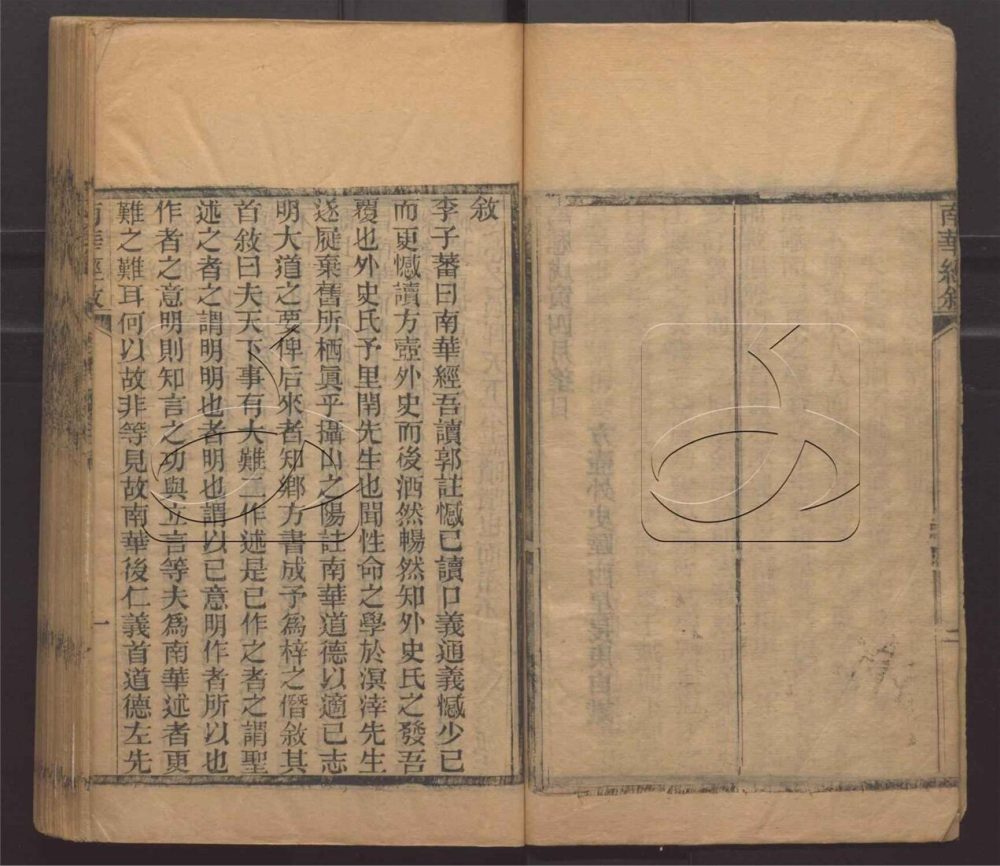 南華經敘
二
敘
李子蕃曰南華經吾讀郭註憾已讀口義通義憾少已
而更憾讀方壺外史而後洒然暢然知外史氏之發吾
覆也外史氏予里閈先生也聞性命之學於溟涬先生
遂屣棄舊所栖眞乎攝山之陽註南華道德以適已志
明大道之要俾后來者知鄉方書成予爲梓之僭敘其
首敘曰夫天下事有大難二作述是已作之者之謂聖
述之者之謂明明也者明也謂以已意明作者所以也
作者之意明則知言之功與立言等夫爲南華述者更
難之難耳何以故非等見故南華後仁義首道德左先
南華經敘
一